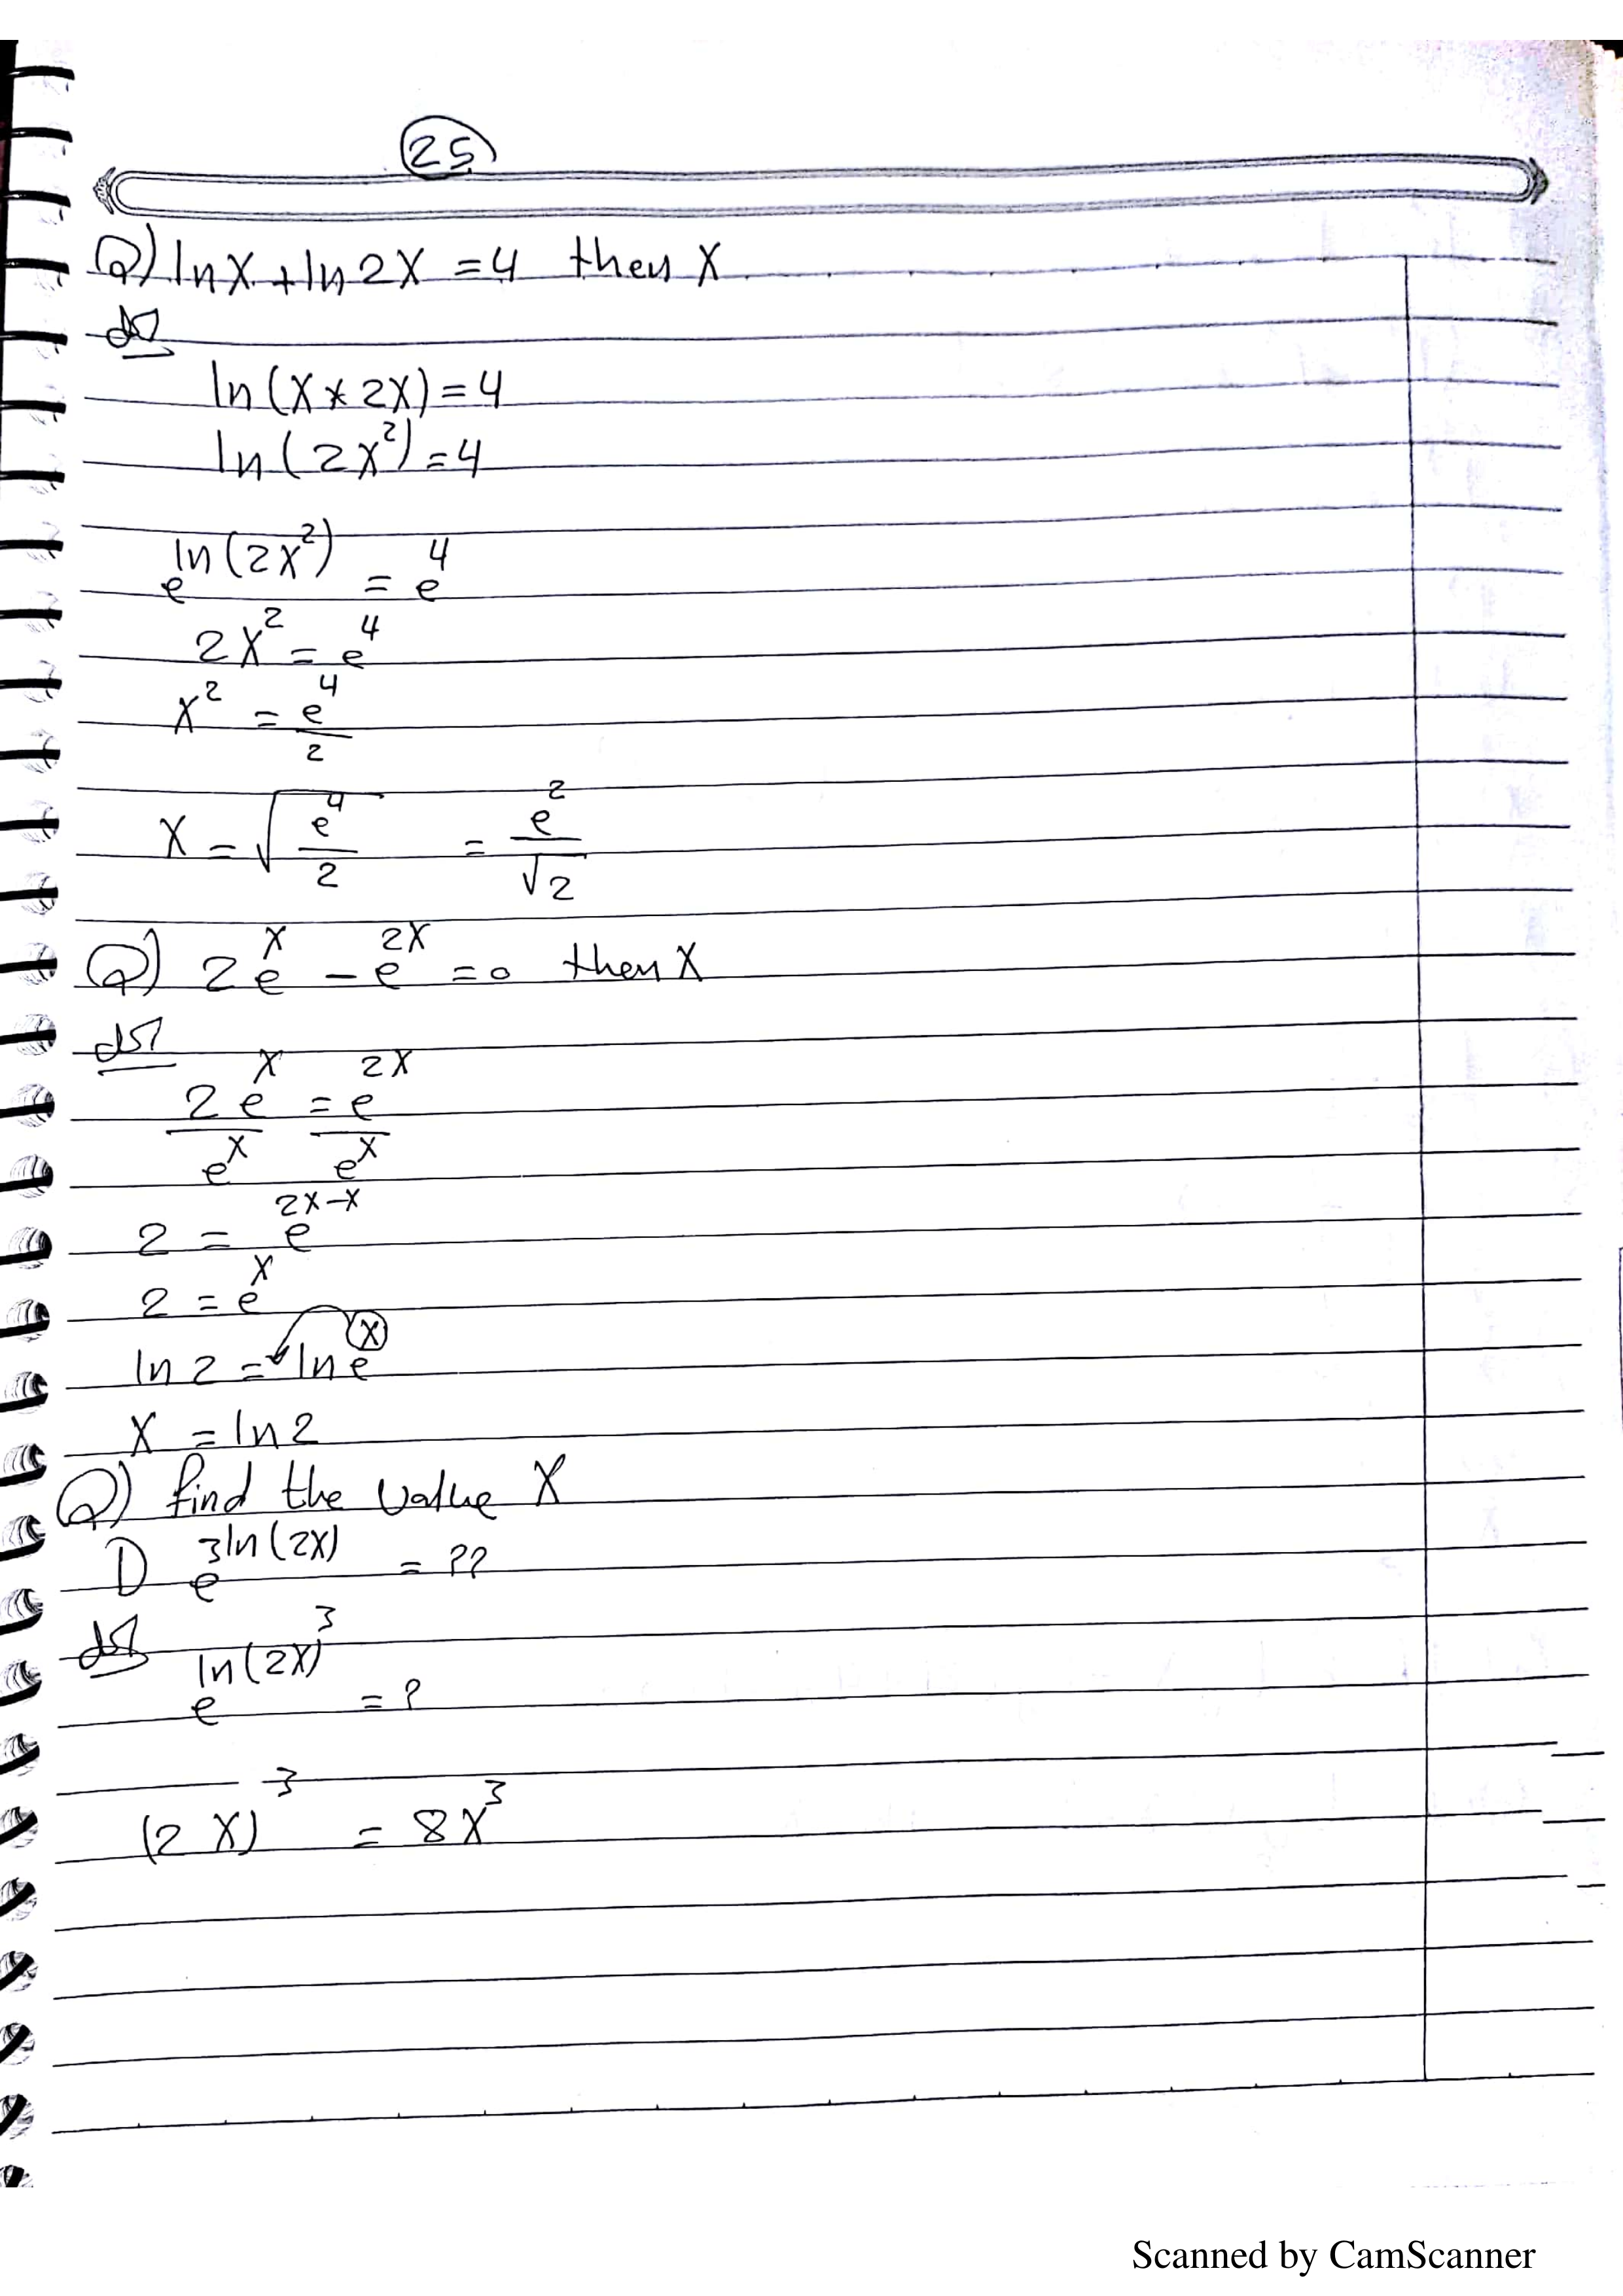 25
Q) lnX + ln2X = 4 then X
الحل
ln(X * 2X) = 4
ln(2X²) = 4
e^ln(2X²) = e^4
2X² = e^4
X² = e^4/2
X = √(e^4/2) = e²/√2
Q) 2e^X - e^2X = 0 then X
الحل
2e^X/e^X = e^2X/e^X
2 = e^2X-X
2 = e^X
ln2 = ln e^X
X = ln2
Q) find the value X
1) e^3ln(2X) = ??
الحل
e^ln(2X)^3 = ?
(2X)^3 = 8X^3
Scanned by CamScanner